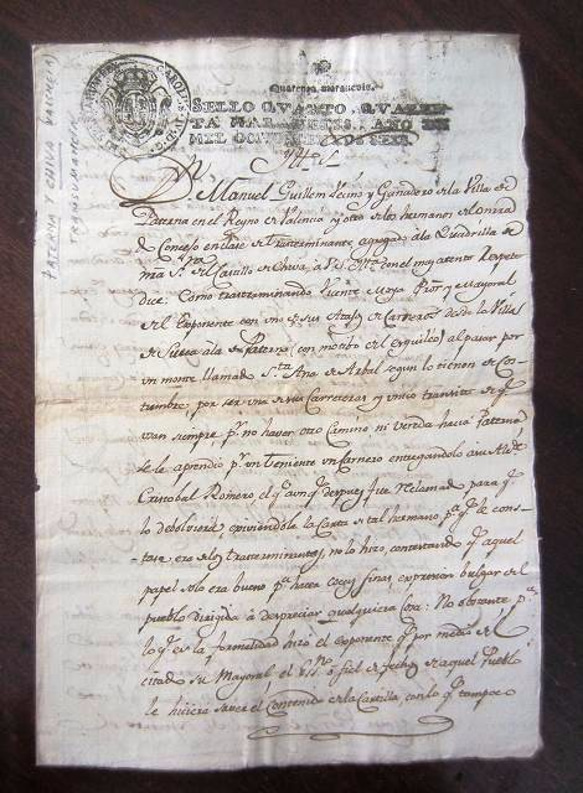 Quarenta maravedis.
SELLO QVARTO, QVAREN-
TA MARAVEDIS, AÑO DE
MIL
PATERNA Y CHIVA VALENCIA
TRASHUMANCIA
Manuel Guillem Vecino y Ganadero de la Villa de
Paterna en el Reyno de Valencia y otro de los hermanos del onrrad
Concejo en clase de Trasterminante, agregado à la Quadrilla de
nra Sra del Castillo de Chiva, à V.S. con el mas atento Respeto
dice: Como trasterminando Vicente Moya Pror y Mayoral
del Exponente con uno de sus Atajos de Carneros desde la Villa
de Sueca à la de Paterna (con motibo del esquileo) al pasar por
un monte llamado Sta Ana de Arbal segun lo tienen de Cos-
tumbre, por ser una de sus Carreteras y unico transito de q.
usan siempre pr. no haver otro Camino ni Vereda hacia Paterna
se le aprendió pr. un Teniente un Carnero entregandolo a su Alde
Cristobal Romero el q. aunq. despues fue Reclamado para q.
lo debolviera, exiviendole la Carta de tal hermano pa. q. le cons-
-tase era de los trasterminantes, no lo hizo, contestando q. aquel
papel solo era bueno pa. hacer cosas finas, expresion bulgar del
pueblo dirigida à despreciar qualquiera cosa: No obstante pa.
lo q. es la formalidad hizo el exponente q. por medio del
citado su Mayoral el Sno. ô fiel de fechos de aquel Pueblo
le hiciera saver el Contenido de la Cartilla, con lo q. tampoco